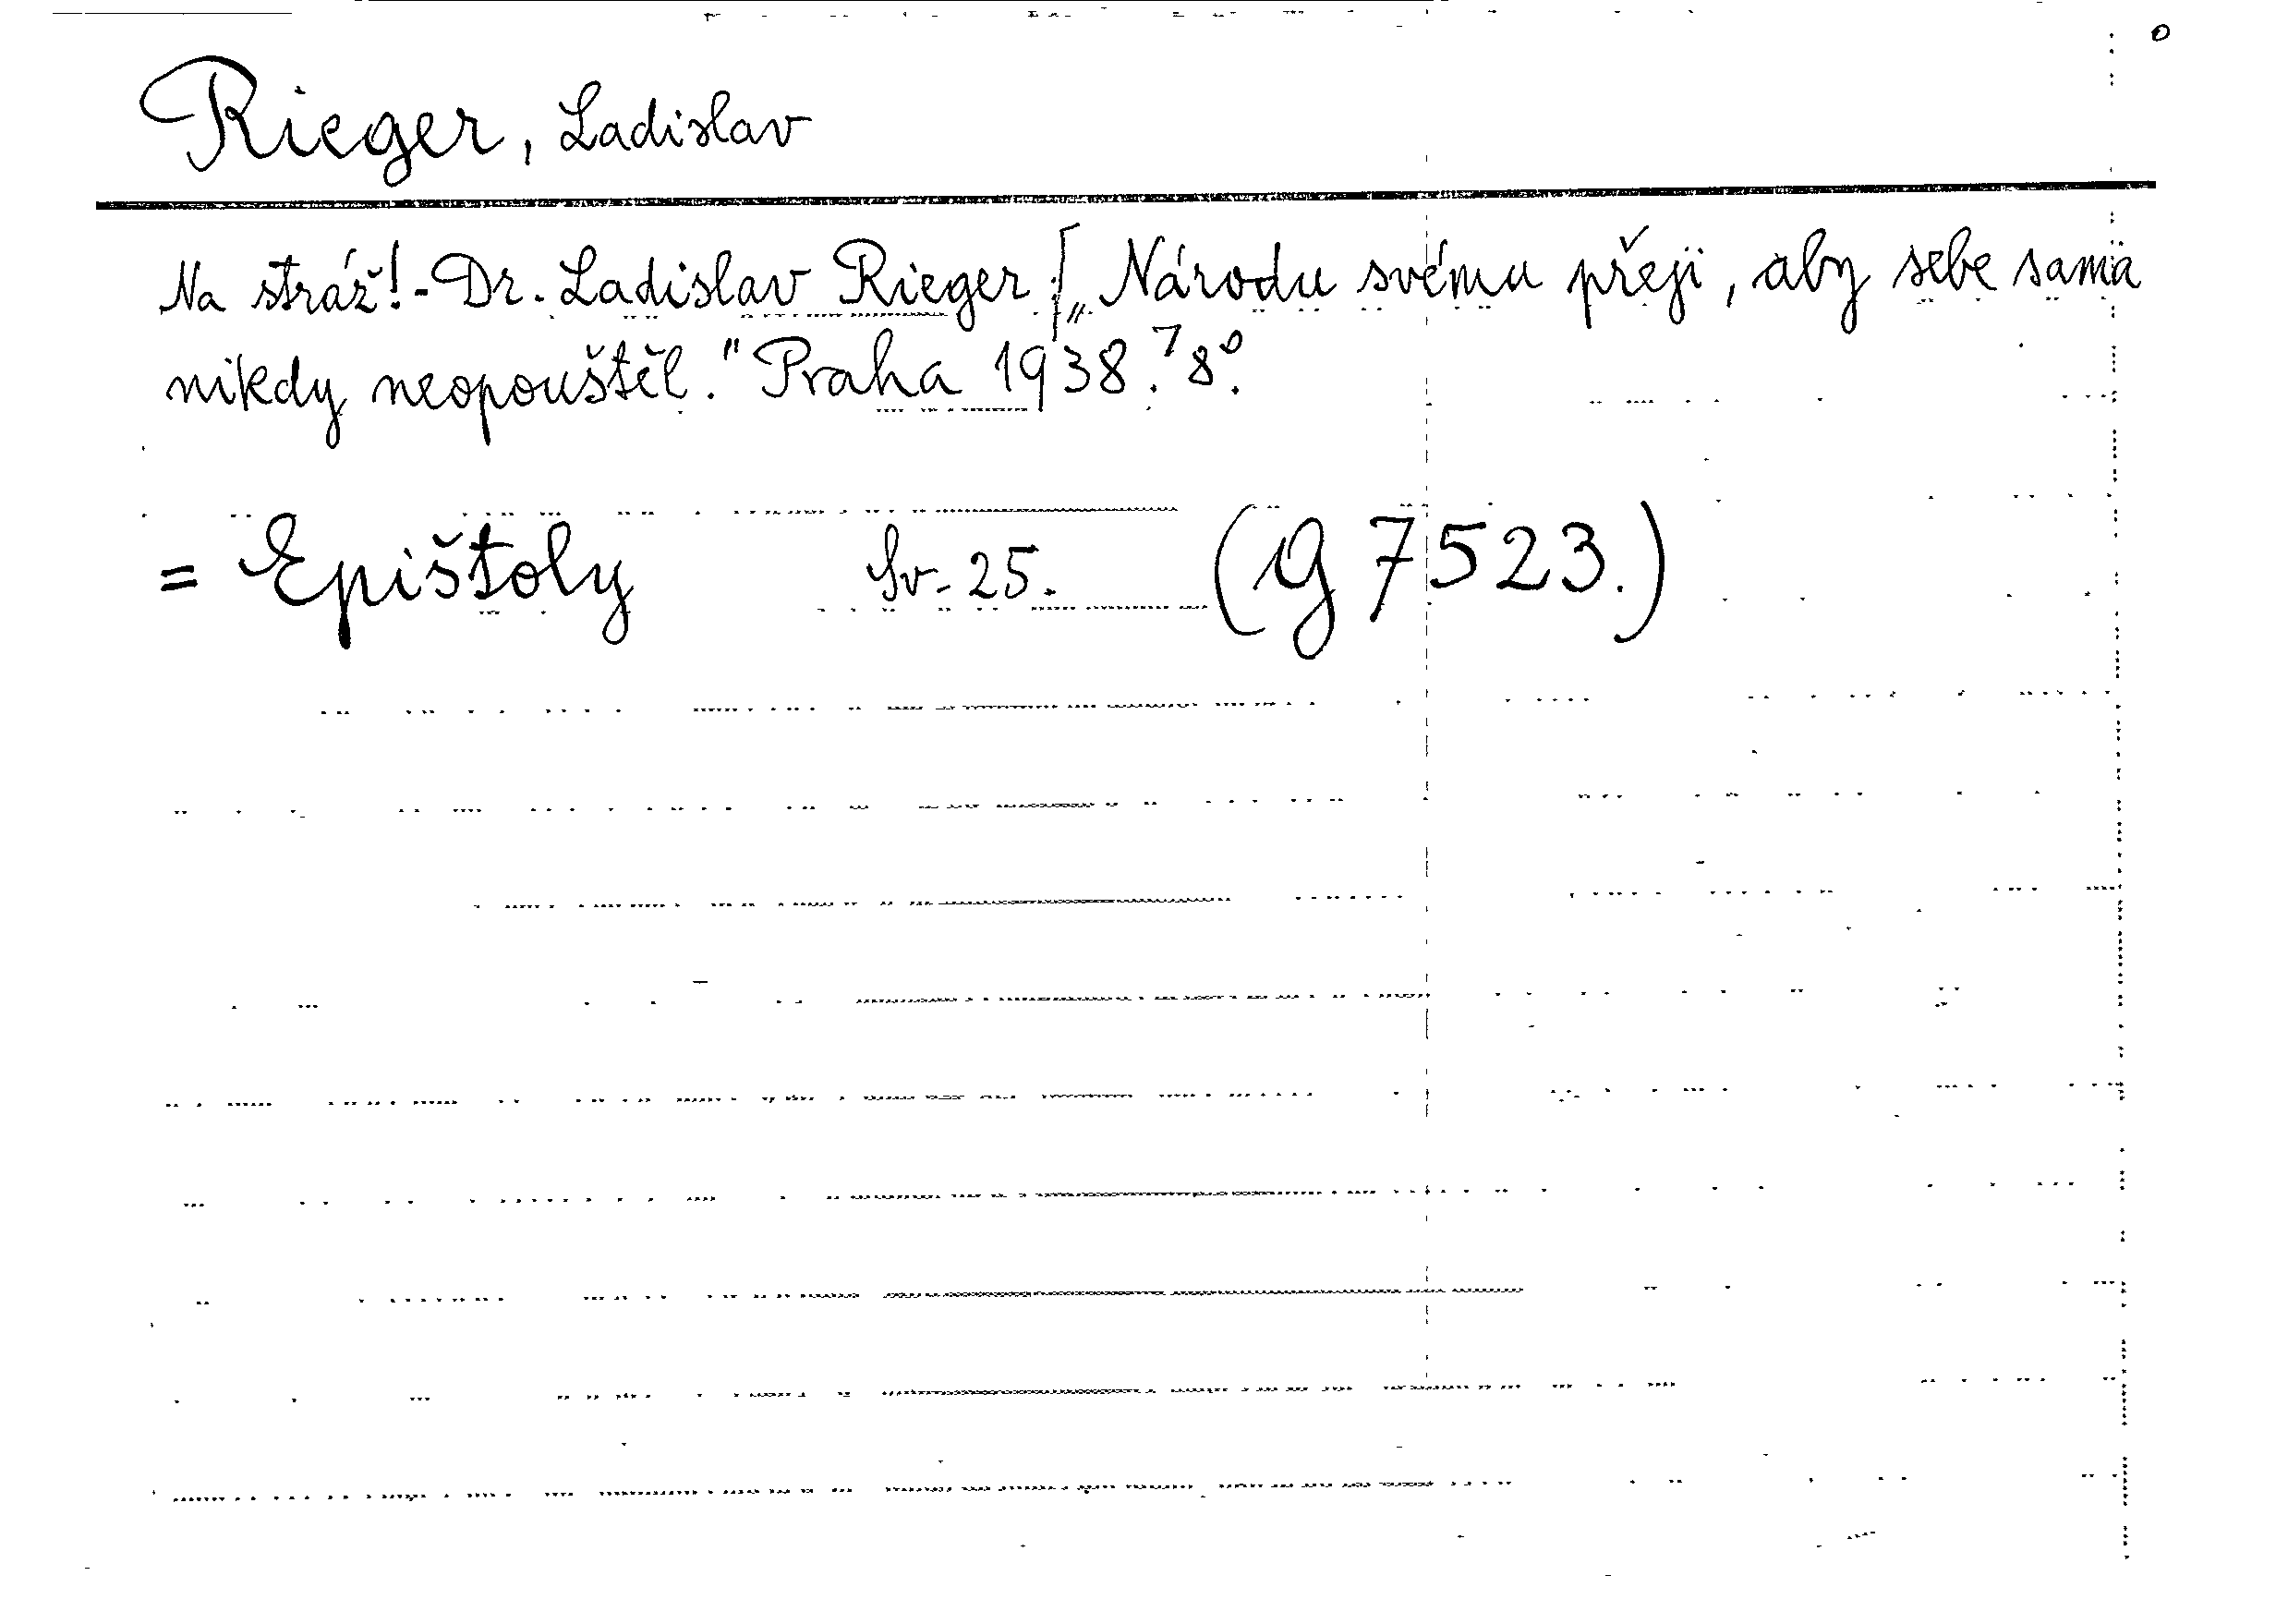 Rieger, Ladislav
Na stráž! - Dr. Ladislav Rieger: [„Národu svému přeji, aby sebe sama
nikdy neopouštěl." Praha 1938.] 8°.
= Epištoly Sv. 25. (g 7523.)